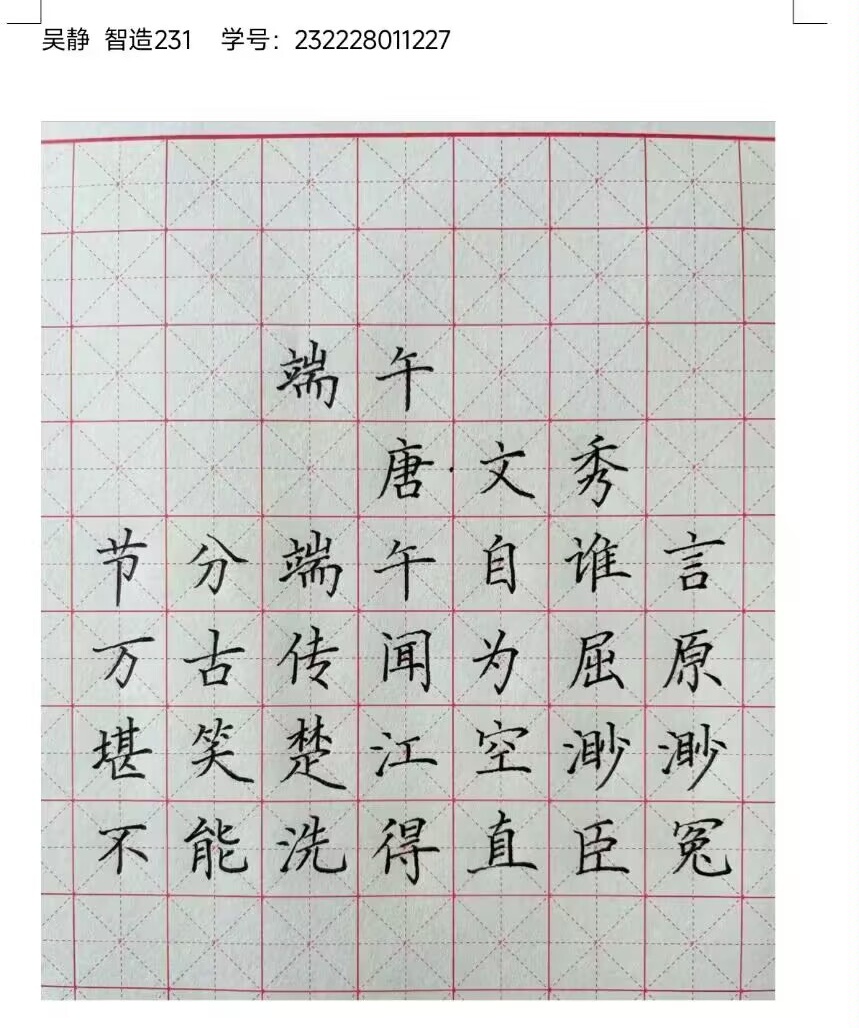 吴静 智造231 学号：232228011227
端午
唐·文秀
节分端午自谁言
万古传闻为屈原
堪笑楚江空渺渺
不能洗得直臣冤